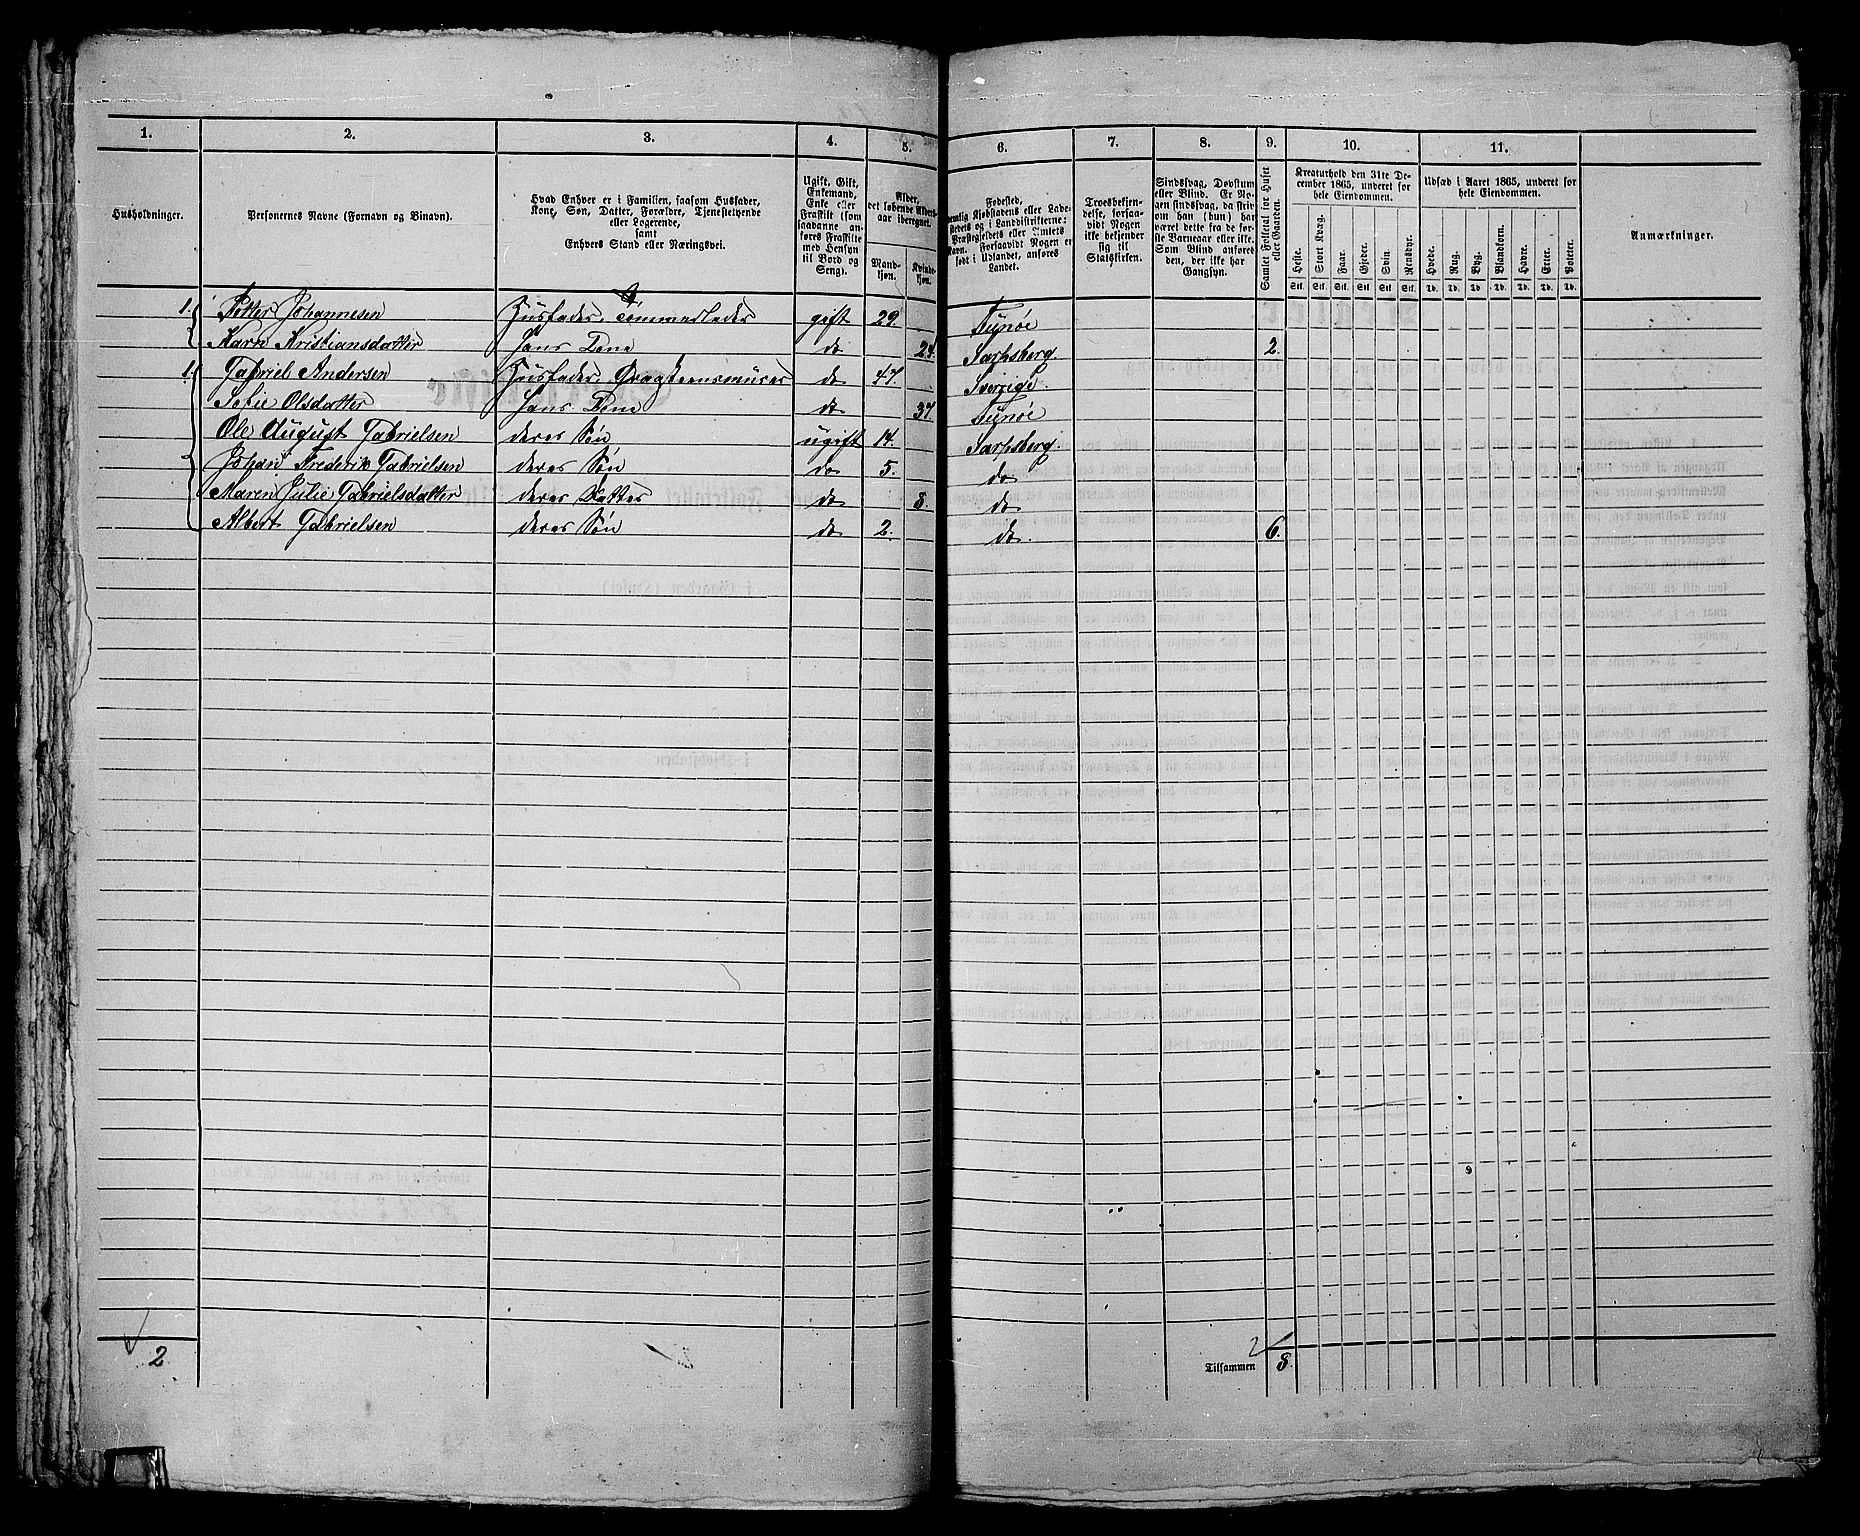 1. 2. 3. 4. 5. 6. 7. 8. 9. 10. 11.
Husholdninger.
Personernes Navne (Fornavn og Binavn).
Hvad Enhver er i Familien, saasom Husfader,
Kone, Søn, Datter, Forældre, Tjenestetyende
eller Logerende,
samt
Enhvers Stand eller Næringsvei.
Ugift, Gift,
Enkemand,
Enke eller
Fraskilt (som
saadanne an-
føres Fraskilte
med Hensyn
til Bord og
Seng).
Alder,
det løbende Alders-
aar iberegnet.
Mand-
kjøn.
Kvinde-
kjøn.
Fødested,
nemlig Kjøbstadens eller Lade-
stedets og i Landdistrikterne:
Præstegjeldets eller Amtets
Navn. Forsaavidt Nogen er
født i Udlandet, anføres
Landet.
Troesbekjen-
delse, forsaa-
vidt Nogen
ikke bekjender
sig til
Statskirken.
Sindssvag, Døvstum
eller Blind. Er No-
gen sindssvag, da skriv
om han (hun) har
været dette fra de før-
ste Barneaar eller ikke.
Som Blind anføres
den, der ikke har
Gangsyn.
Samlet Folketal for Huset
eller Gaarden.
Kreaturhold den 31te De-
cember 1865, underet for
hele Eiendommen.
Heste. Stort Kvæg. Faar. Gjeder. Svin Rensdyr.
Stk. Stk. Stk. Stk. Stk. Stk.
Udsæd i Aaret 1865, underet for
hele Eiendommen.
Hvede. Rug. Byg. Blandkorn. Havre. Erter. Poteter.
Td. Td. Td. Td. Td. Td. Td.
Anmærkninger.
1. Petter Johannesen Husfader, Tømmerlader gift 29. Tunøe
Karn Kristiansdatter Hans Kone do 24. Sarpsberg. 2.
1. Gabriel Andersen Husfader, do 47. Sverrige
Sofie Olsdatter Hans Kone do 37 Tunøe
Ole August Gabrielsen deres Søn ugift 14. Sarpsberg.
Johan Frederik Gabrielsen deres Søn do 5. do
Maren Julie Gabrielsdatter deres Datter do 8. do
Albert Gabrielsen deres Søn do 2. do. 6.
2
Tilsammen 8.